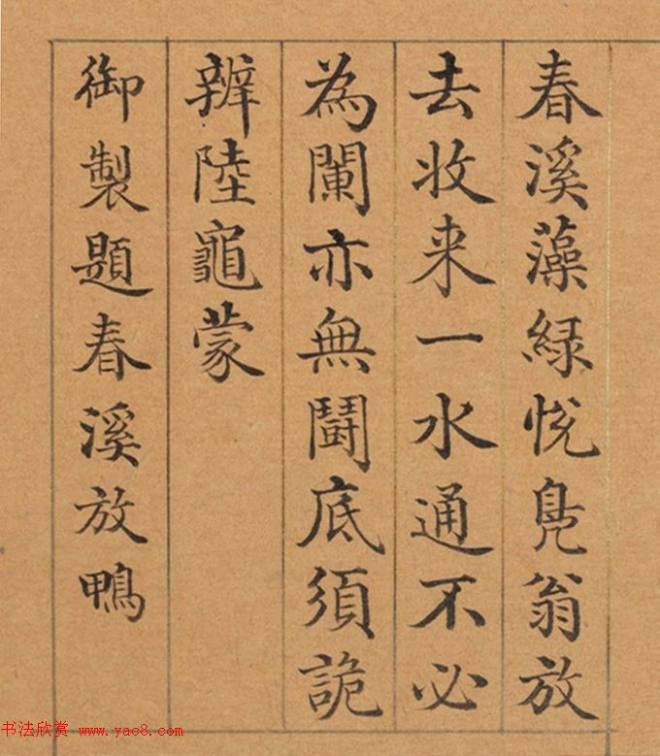 春溪藻緑悅鳧翁放
去收来一水通不必
為闌亦無鬭底須詭
辨陸龜蒙
御製題春溪放鴨
书法欣赏 www.yac8.com